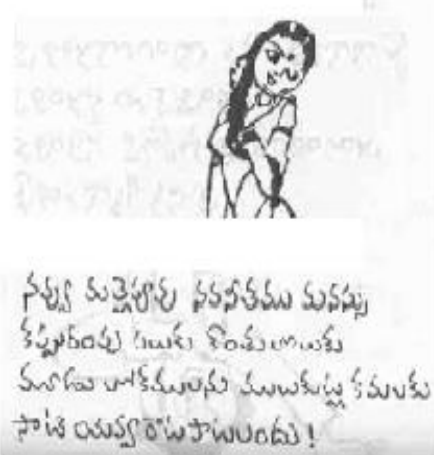 నవ్వు మల్లెపూవు నవనీతము మనస్సు
కప్పురంపు పలుకు
మూడు లోకములను ములుకుట్లు కమలకు
సాటి యెవ్వ రాటపాటలందు!